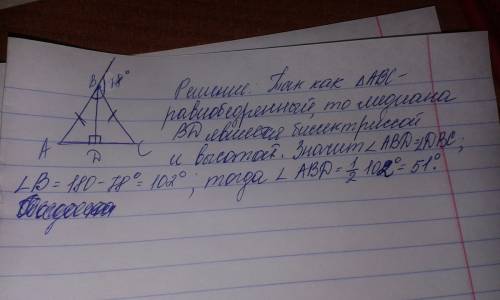 B 78°
Решение. Так как △ABC-
равнобедренный, то медиана
BD является биссектриссой
A D C и высотой. Значит ∠ABD=∠DBC;
∠B = 180-78° = 102°; тогда ∠ABD = 1/2 102° = 51°.